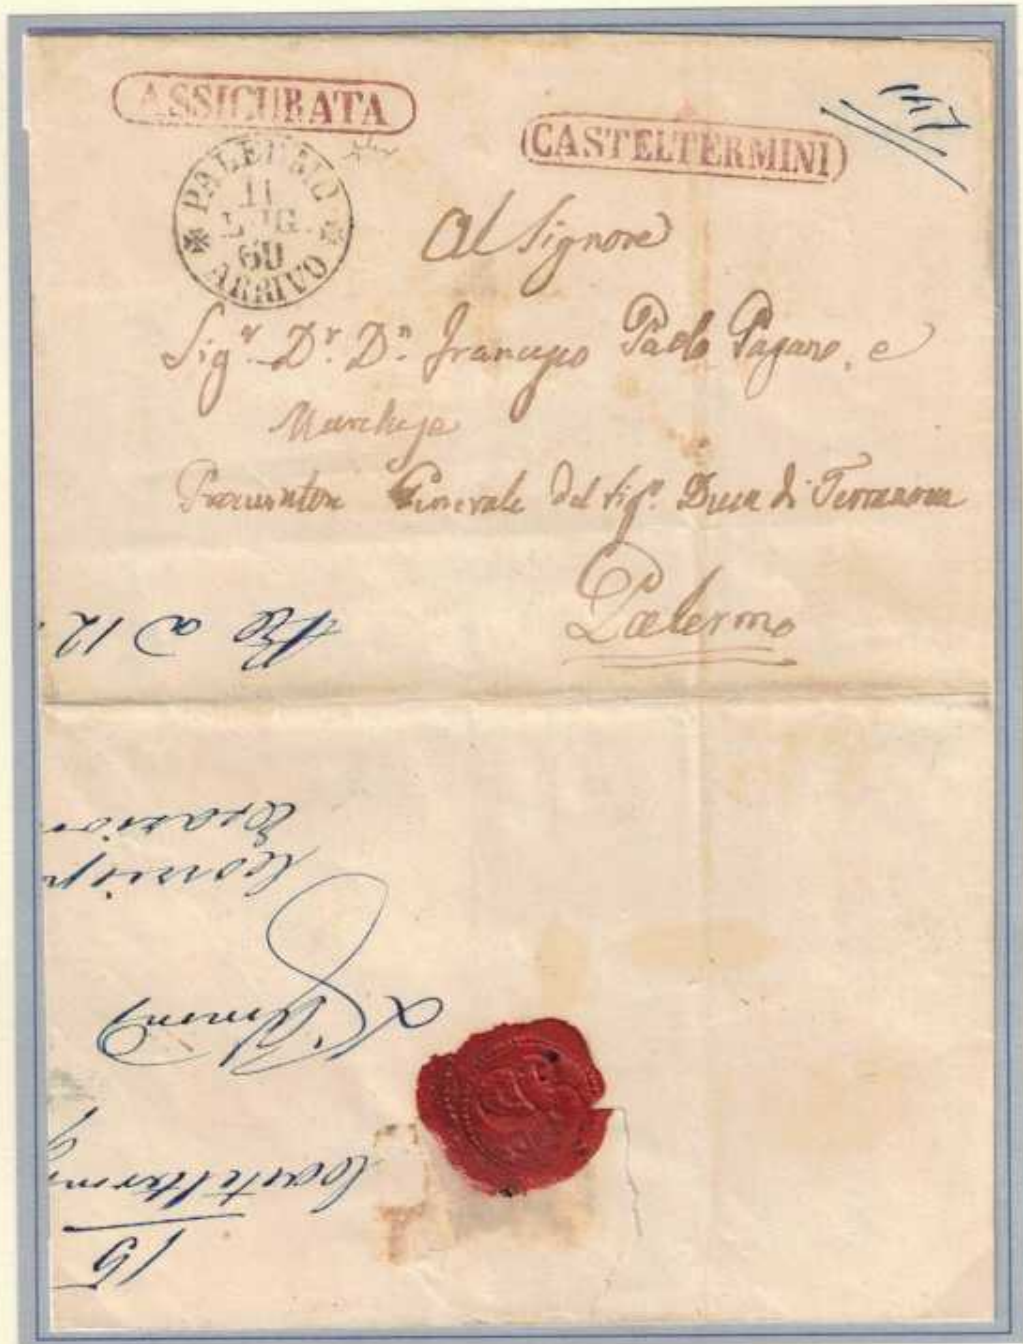 ASSICURATA
CASTELTERMINI
147
PALERMO
11
LUG.
60
ARRIVO
Al Signore
Sig.r D.r D.n Francesco Paolo Pagano, e
Marchese
Procuratore Generale del Sig.r Duca di Terranova
Palermo
a 12
Casteltermi
15